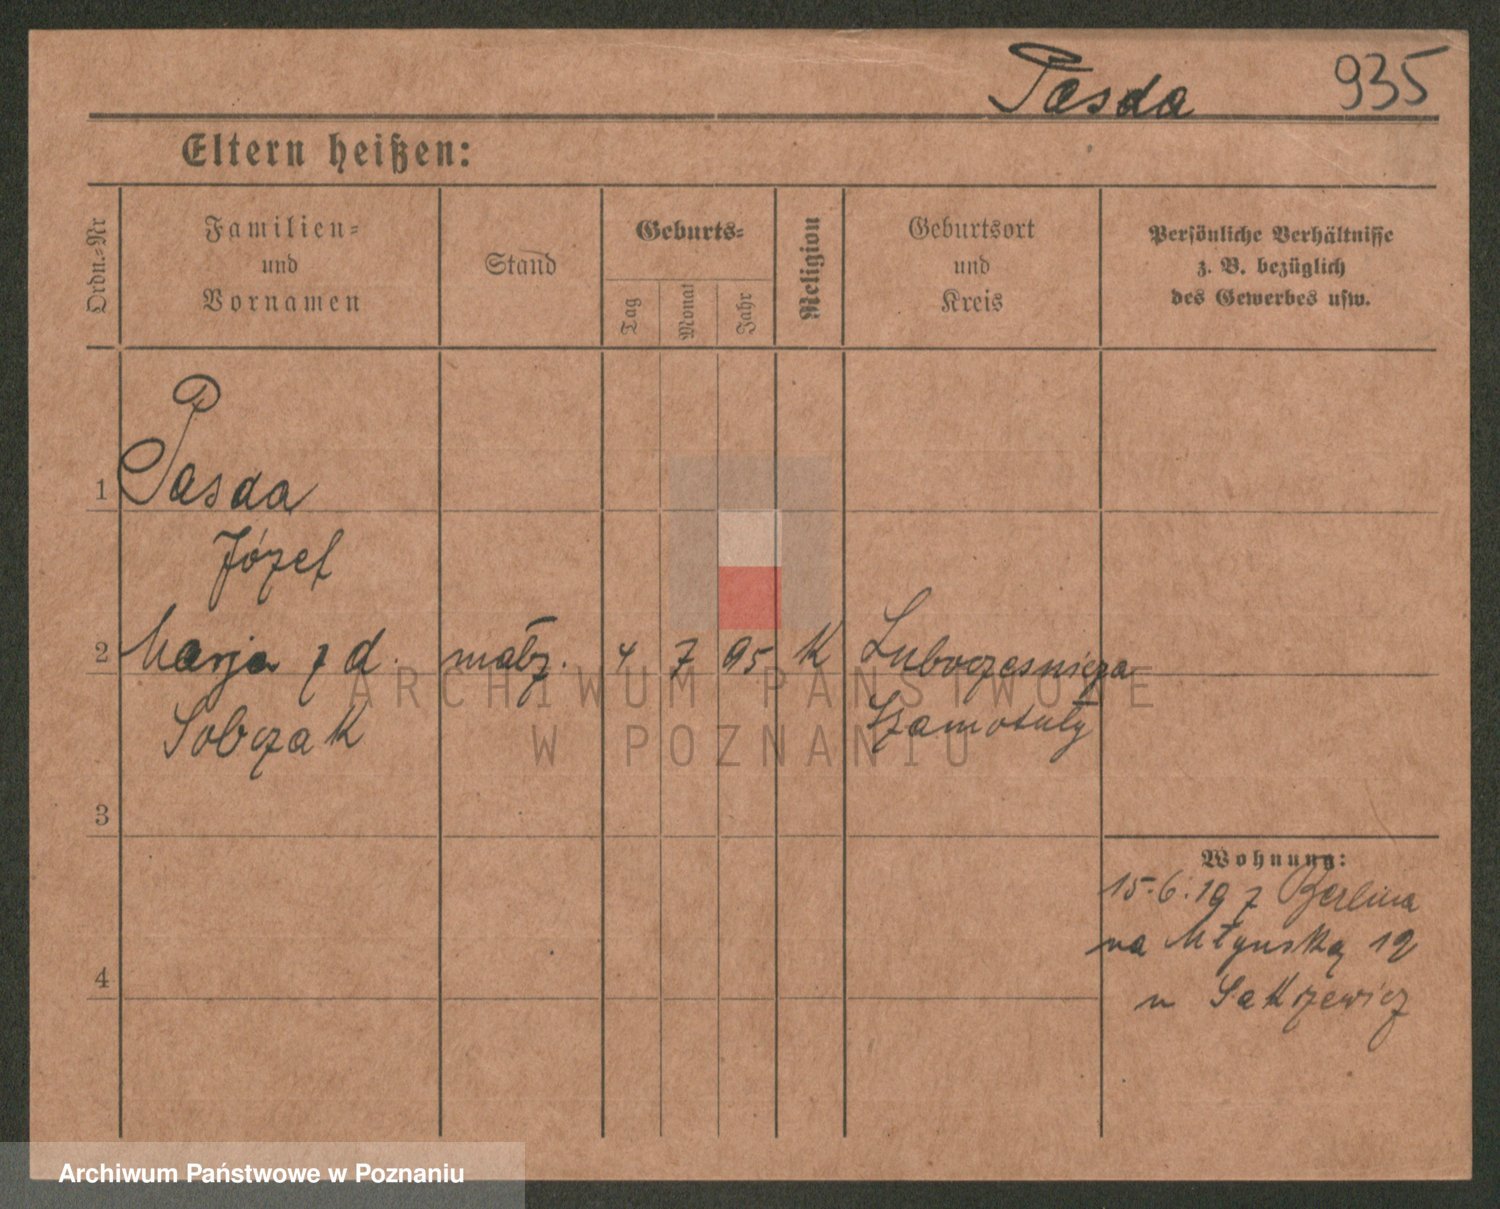 Pasda 935
Eltern heißen:
Ordn.-Nr
Familien-
und
Vornamen
Stand
Geburts-
Tag
Monat
Jahr
Religion
Geburtsort
und
Kreis
Persönliche Verhältnisse
z. B. bezüglich
des Gewerbes usw.
1 Pasda
Józef
2 Marja z d. małż. 4 7 95 K
Sobczak Szamotuły
3
4
Wohnung:
15.6.19 z Berlina
na Młyńską 12
u
ARCHIWUM PAŃSTWOWE
W POZNANIU
Archiwum Państwowe w Poznaniu